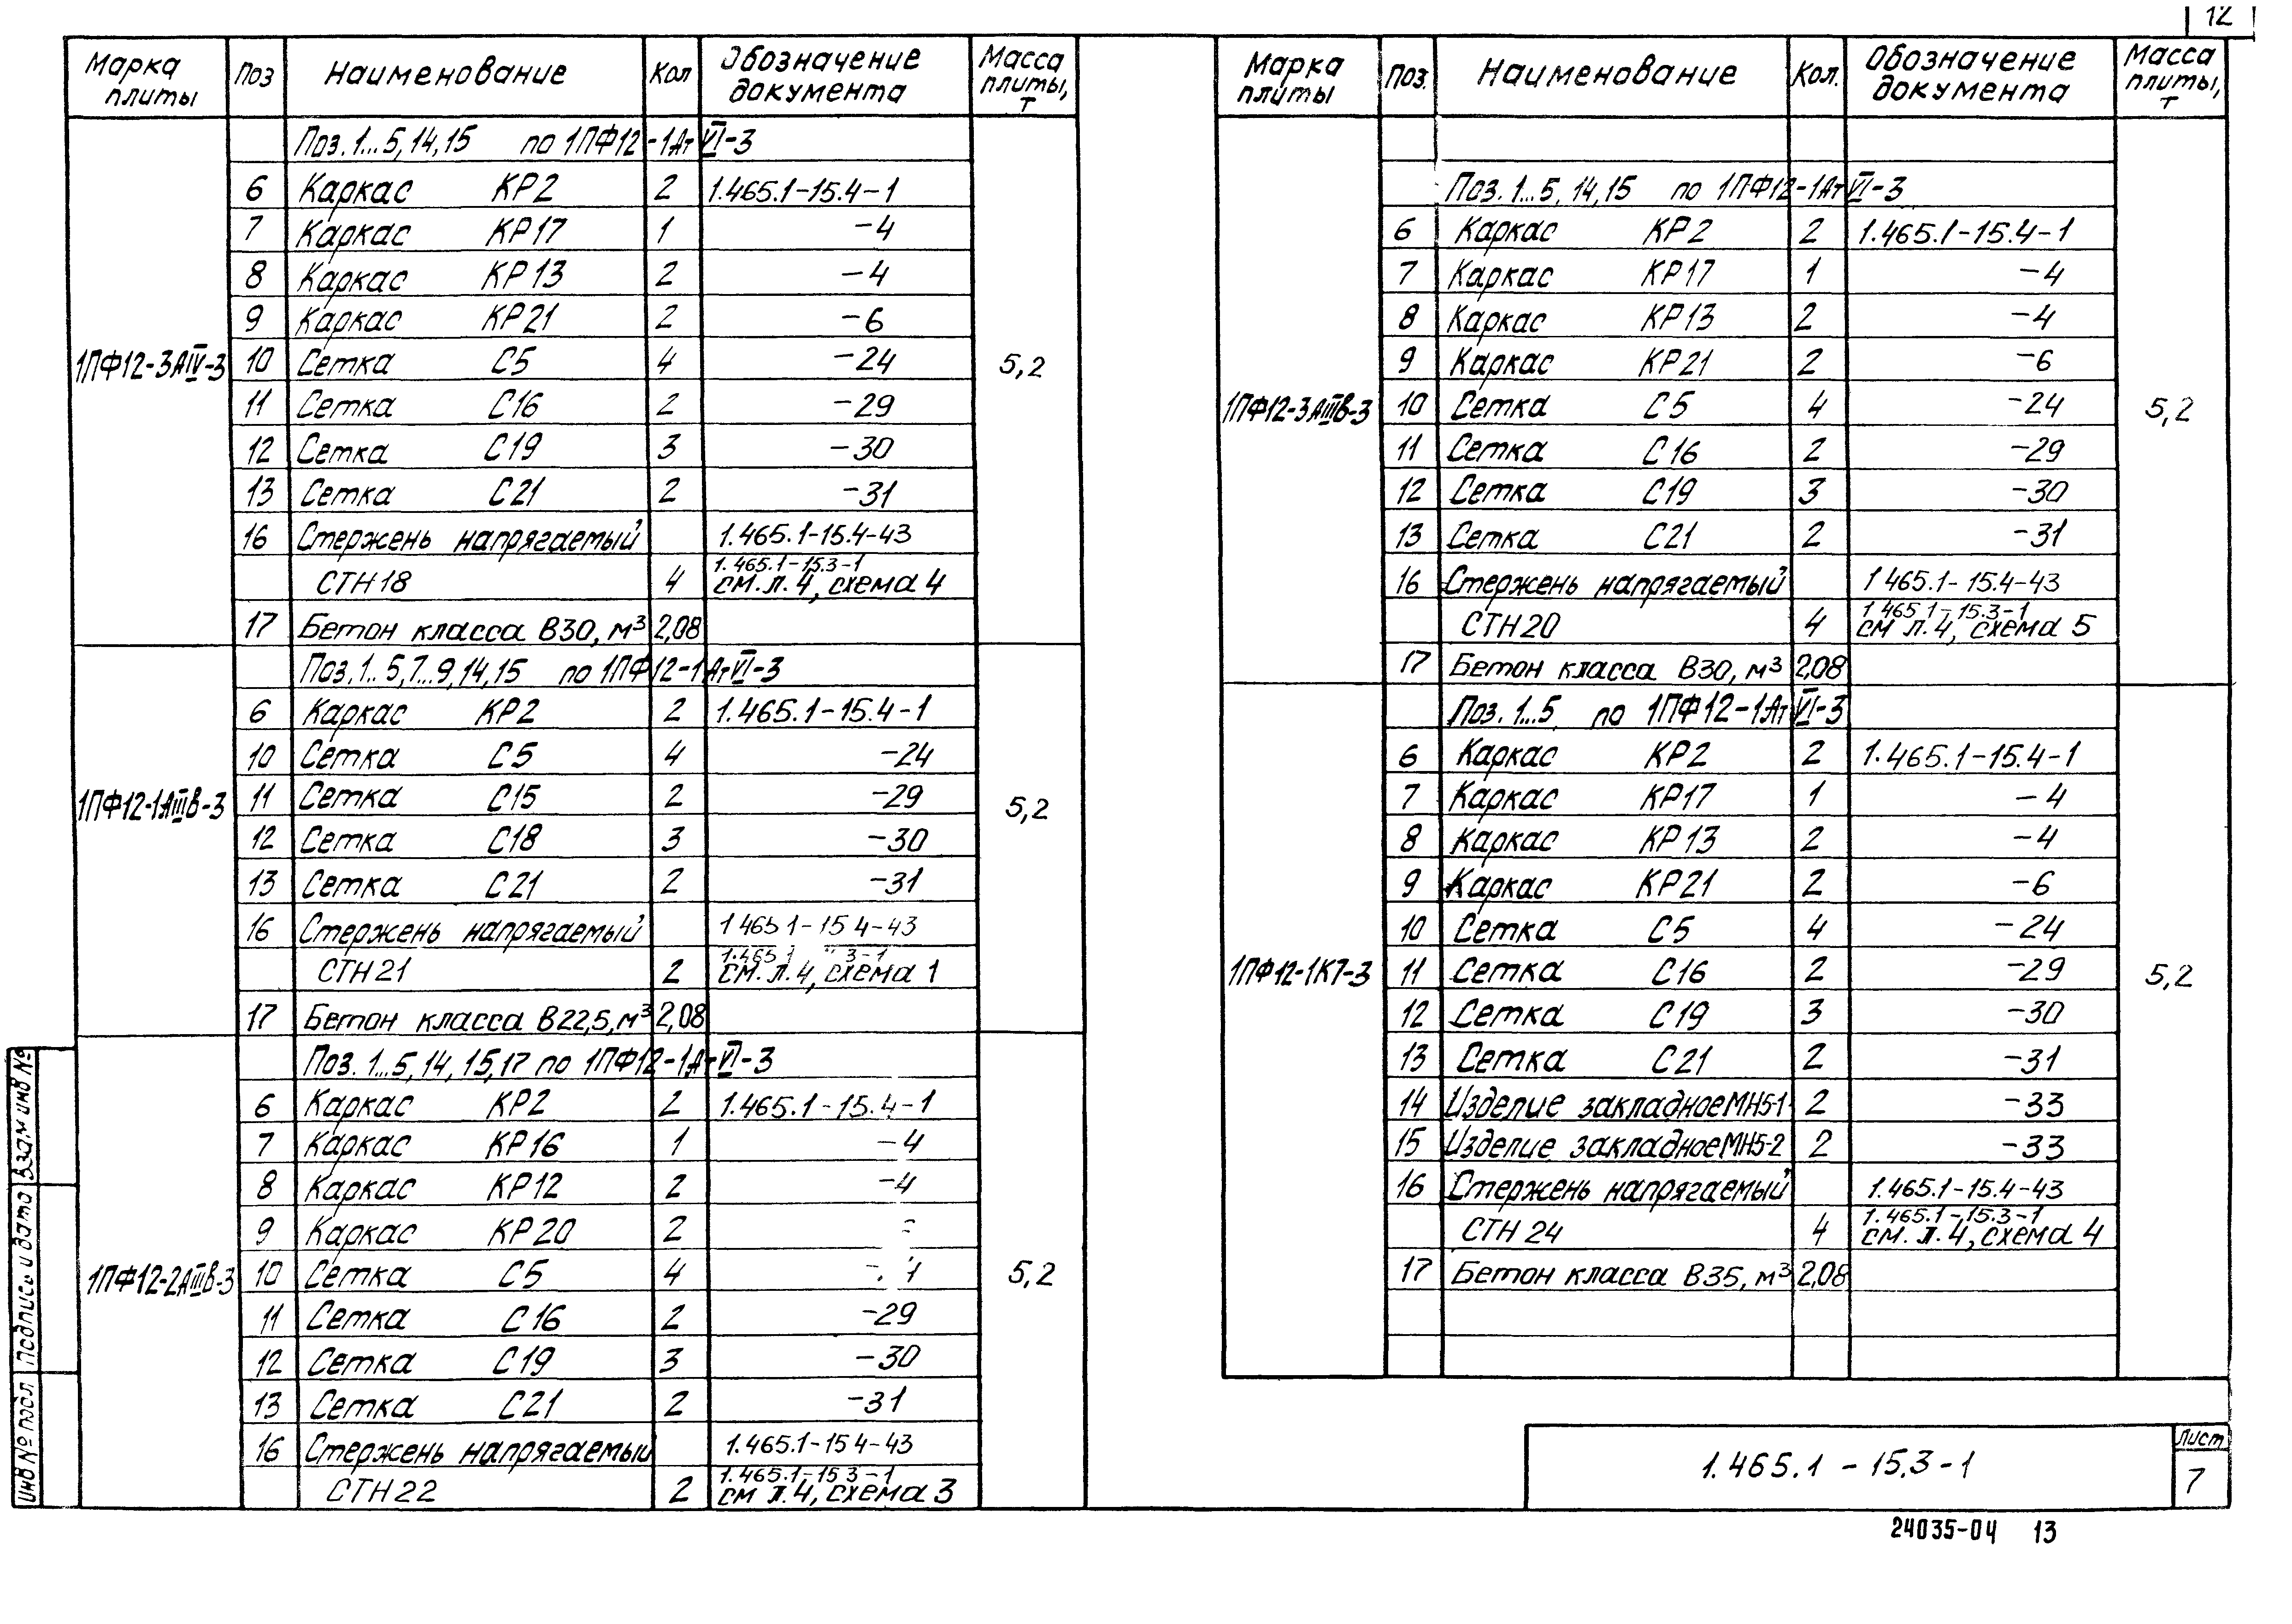 12
Марка плиты Поз Наименование Кол Обозначение документа Масса плиты, т
1ПФ12-3АIV-3 5,2
Поз. 1...5, 14, 15 по 1ПФ12-1АтVI-3
6 Каркас КР2 2 1.465.1-15.4-1
7 Каркас КР17 1 -4
8 Каркас КР13 2 -4
9 Каркас КР21 2 -6
10 Сетка С5 4 -24
11 Сетка С16 2 -29
12 Сетка С19 3 -30
13 Сетка С21 2 -31
16 Стержень напрягаемый 1.465.1-15.4-43
1.465.1-15.3-1
СТН18 4 см. л. 4, схема 4
17 Бетон класса В30, м³ 2,08
1ПФ12-1АIIIв-3 5,2
Поз. 1..5, 7...9, 14, 15 по 1ПФ12-1АтVI-3
6 Каркас КР2 2 1.465.1-15.4-1
10 Сетка С5 4 -24
11 Сетка С15 2 -29
12 Сетка С18 3 -30
13 Сетка С21 2 -31
16 Стержень напрягаемый 1 465 1-15 4-43
1.465 1 3-1
СТН21 2 см. л. 4, схема 1
17 Бетон класса В22,5, м³ 2,08
1ПФ12-2АIIIв-3 5,2
Поз. 1...5, 14, 15, 17 по 1ПФ12-1АтVI-3
6 Каркас КР2 2 1.465.1-15.4-1
7 Каркас КР16 1 -4
8 Каркас КР12 2 -4
9 Каркас КР20 2
10 Сетка С5 4
11 Сетка С16 2 -29
12 Сетка С19 3 -30
13 Сетка С21 2 -31
16 Стержень напрягаемый 1.465.1-15 4-43
1.465.1-15 3-1
СТН22 2 см л. 4, схема 3
Марка плиты Поз. Наименование Кол. Обозначение документа Масса плиты, т
1ПФ12-3АIIIв-3 5,2
Поз. 1...5, 14, 15 по 1ПФ12-1АтVI-3
6 Каркас КР2 2 1.465.1-15.4-1
7 Каркас КР17 1 -4
8 Каркас КР13 2 -4
9 Каркас КР21 2 -6
10 Сетка С5 4 -24
11 Сетка С16 2 -29
12 Сетка С19 3 -30
13 Сетка С21 2 -31
16 Стержень напрягаемый 1 465.1-15.4-43
1 465.1-15.3-1
СТН20 4 см л. 4, схема 5
17 Бетон класса В30, м³ 2,08
1ПФ12-1К7-3 5,2
Поз. 1...5 по 1ПФ12-1АтVI-3
6 Каркас КР2 2 1.465.1-15.4-1
7 Каркас КР17 1 -4
8 Каркас КР13 2 -4
9 Каркас КР21 2 -6
10 Сетка С5 4 -24
11 Сетка С16 2 -29
12 Сетка С19 3 -30
13 Сетка С21 2 -31
14 Изделие закладное МН5-1 2 -33
15 Изделие закладное МН5-2 2 -33
16 Стержень напрягаемый 1.465.1-15.4-43
1.465.1-15.3-1
СТН24 4 см. л. 4, схема 4
17 Бетон класса В35, м³ 2,08
Инв № подл Подпись и дата Взам инв №
1.465.1-15.3-1
Лист
7
24035-04 13